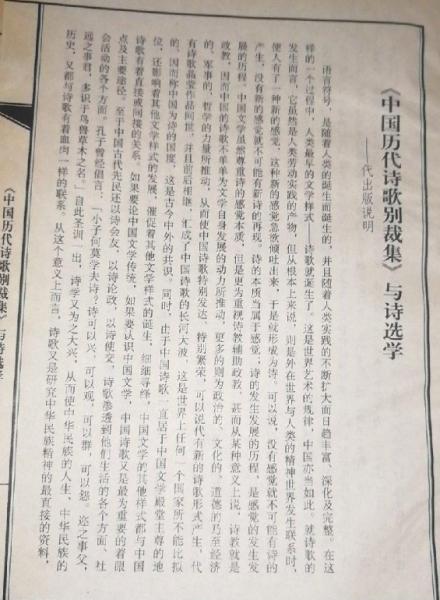 《中国历代诗歌别裁集》与诗选学
——代出版说明
语言符号，是随着人类的诞生而诞生的，并且随着人类实践的不断扩大而日趋丰富、深化及完整。在这
样的一个过程中，人类最早的文学样式——诗歌就诞生了。这是世界艺术的规律，中国亦当如此。就诗歌的
发生而言，它虽然是人类劳动实践的产物，但从根本上来说，则是外在世界与人类的精神世界发生联系时，
便人有了一种新的感觉，这种新的感觉急欲倾吐出来，于是就形成为诗。可以说，没有感觉就不可能有诗的
产生，没有新的感觉就不可能有新诗的再现。诗的本质当属于感觉；诗的发生发展的历程，是感觉的发生发
展的历程。中国文学虽然尊重诗的感觉本质，但是更为重视诗教辅助政教，甚而从某种意义上说，诗教就是
政教，因而中国的诗歌不单单为文学自身发展的动力所推动，更多的则为政治的、文化的、道德的乃至经济
的、军事的、哲学的力量所推动，从而使中国诗歌特别发达、特别繁荣，可以说代有新的诗歌形式产生，代
有诗歌晶莹作品问世，并且前后相继，汇成了中国诗歌的长河大波，这是世界上任何一个国家所不能比拟
的，因而称中国为诗的国度，这是古今中外的共识。同时，由于中国诗歌，直居于中国文学殿堂至尊的地
位，还影响着其他文学样式的发展，催促着其他文学样式的诞生，细细寻绎，中国文学的其他样式都与中国
诗歌有着直接或间接的关系。如果要论中国文学传统，如果要认识中国文学，中国诗歌又是最为重要的着眼
点及主要途径。至于中国古代先民还以诗会友，以诗论政，以诗使交，诗歌渗透到他们生活的各个方面、社
会活动的各个方面。孔子曾经倡言：“小子何莫学夫诗？诗可以兴，可以观，可以群，可以怨。迩之事父，
远之事君，多识于鸟兽草木之名。”自此圣训一出，诗学又为之大兴，从而使中华民族的人生、中华民族的
历史，又都与诗歌有着血肉一样的联系。从这个意义上而言，诗歌又是研究中华民族精神的最直接的资料，
《中国历代诗歌别裁集》与诗选学